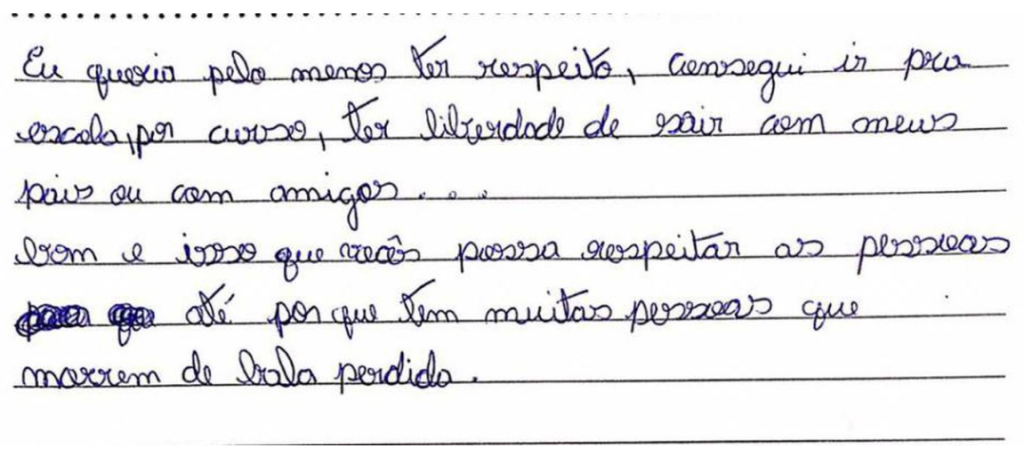 Eu queria pelo menos ter respeito, consegui ir pra
escola, por curso, ter liberdade de sair com meus
pais ou com amigos...
bom e isso que vocês possa respeitar as pessoas
até por que tem muitas pessoas que
morrem de bala perdida.